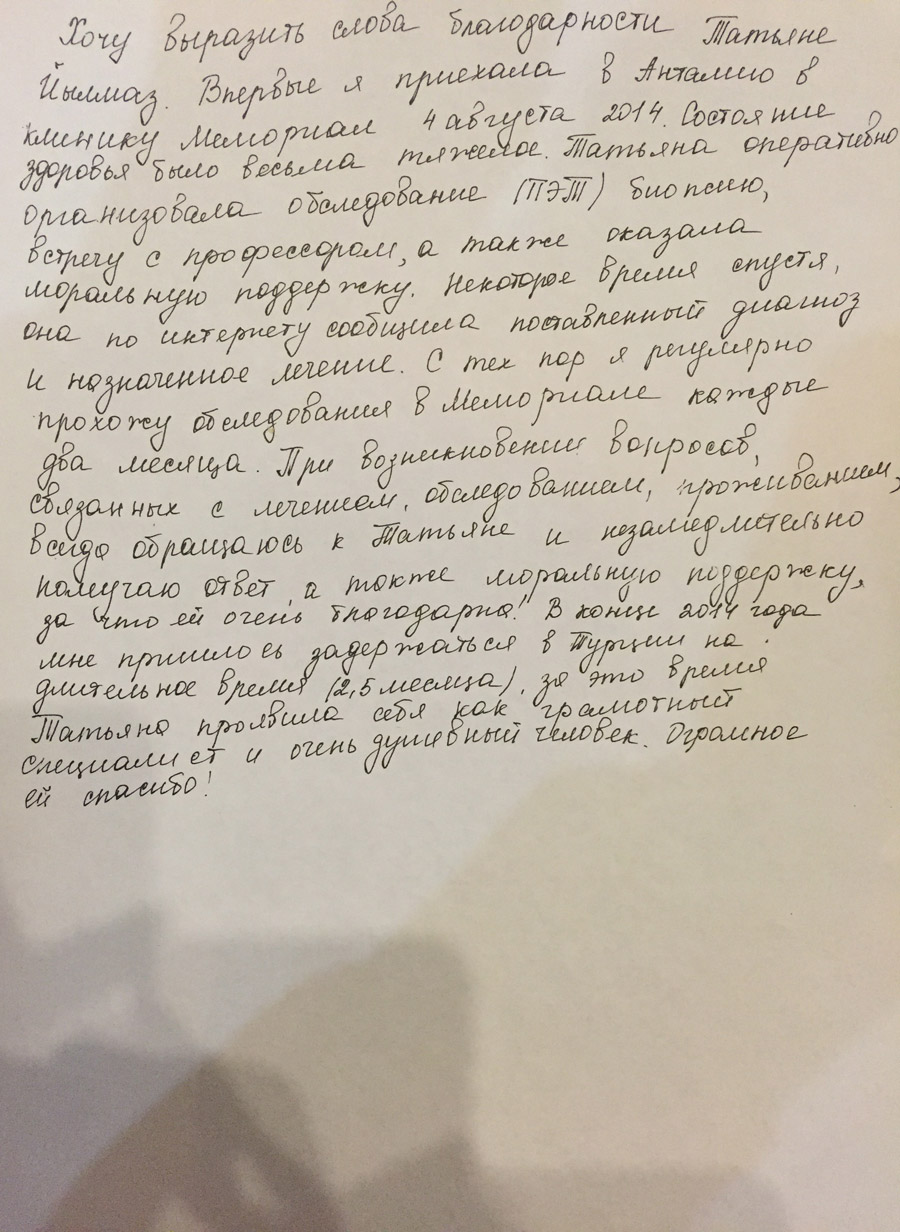 Хочу выразить слова благодарности Татьяне
Йылмаз. Впервые я приехала в Анталию в
клинику Мемориал 4 августа 2014. Состояние
здоровья было весьма тяжелое. Татьяна оперативно
организовала обследование (ПЭТ) биопсию,
встречу с профессором, а также оказала
моральную поддержку. Некоторое время спустя,
она по интернету сообщила поставленный диагноз
и назначенное лечение. С тех пор я регулярно
прохожу обследования в Мемориале каждые
два месяца. При возникновении вопросов,
связанных с лечением, обследованием, проживанием,
всегда обращаюсь к Татьяне и незамедлительно
получаю ответ, а также моральную поддержку,
за что ей очень благодарна! В конце 2014 года
мне пришлось задержаться в Турции на
длительное время (2,5 месяца), за это время
Татьяна проявила себя как грамотный
специалист и очень душевный человек. Огромное
ей спасибо!